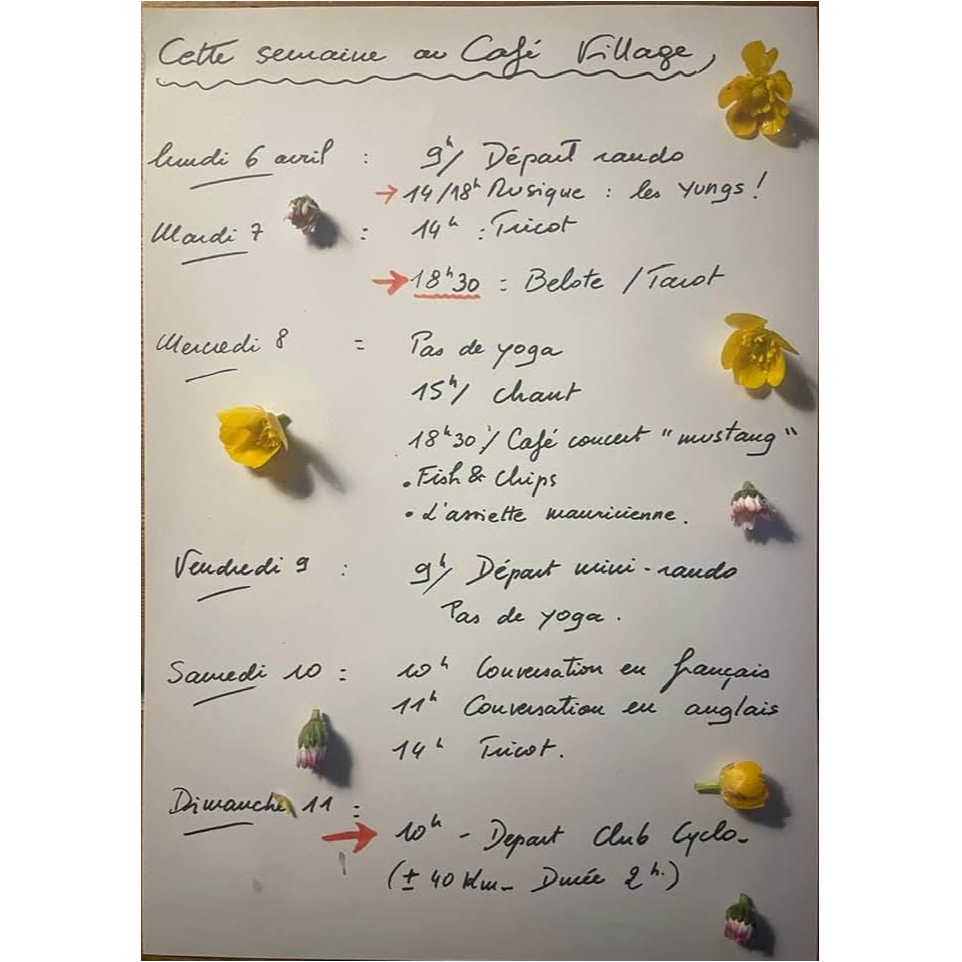 Cette semaine au Café Village
lundi 6 avril : 9h/ Départ rando
→ 14/18h Musique : les Yungs !
Mardi 7 : 14h : Tricot
→ 18h30 : Belote / Tarot
Mercredi 8 : Pas de yoga
15h/ Chant
18h30 / Café concert "mustang"
. Fish & Chips
. L'assiette mauricienne.
Vendredi 9 : 9h/ Départ mini-rando
Pas de yoga.
Samedi 10 : 10h Conversation en français
11h Conversation en anglais
14h Tricot.
Dimanche 11 :
→ 10h - Depart Club Cyclo-
(± 40 km - Durée 2h.)